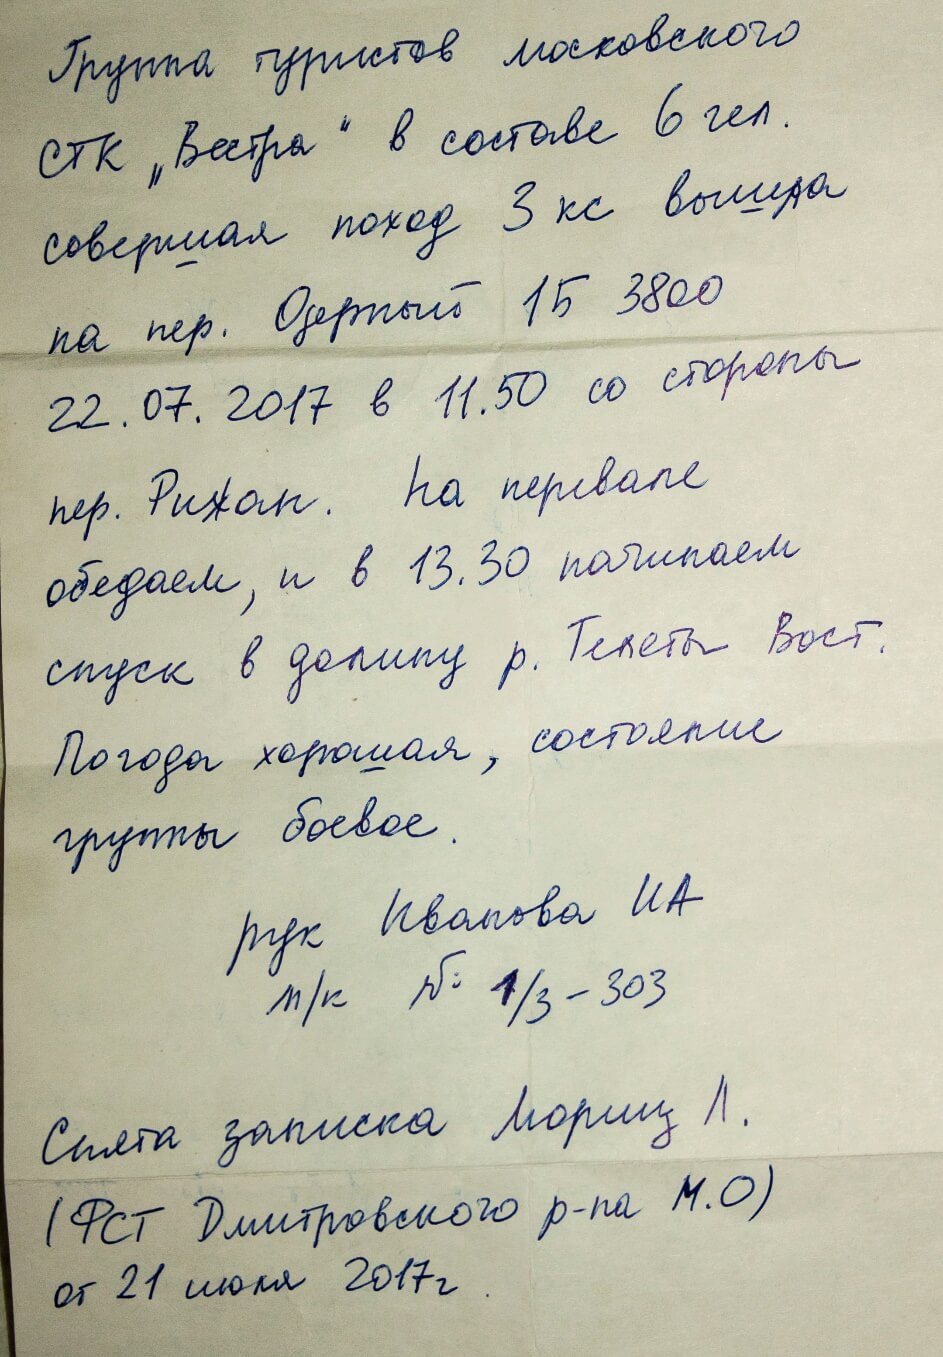 Группа туристов московского
СТК „Вестра" в составе 6 чел.
совершая поход 3 кс вышла
на пер. Озерный 1Б 3800
22.07.2017 в 11.50 со стороны
пер. Рижан. На перевале
обедаем, и в 13.30 начинаем
спуск в долину р. Телеты Вост.
Погода хорошая, состояние
группы боевое.
рук Иванова ИА
м/к № 1/3-303
Снята записка Мориц Л.
(ФСТ Дмитровского р-на М.О)
от 21 июля 2017г.